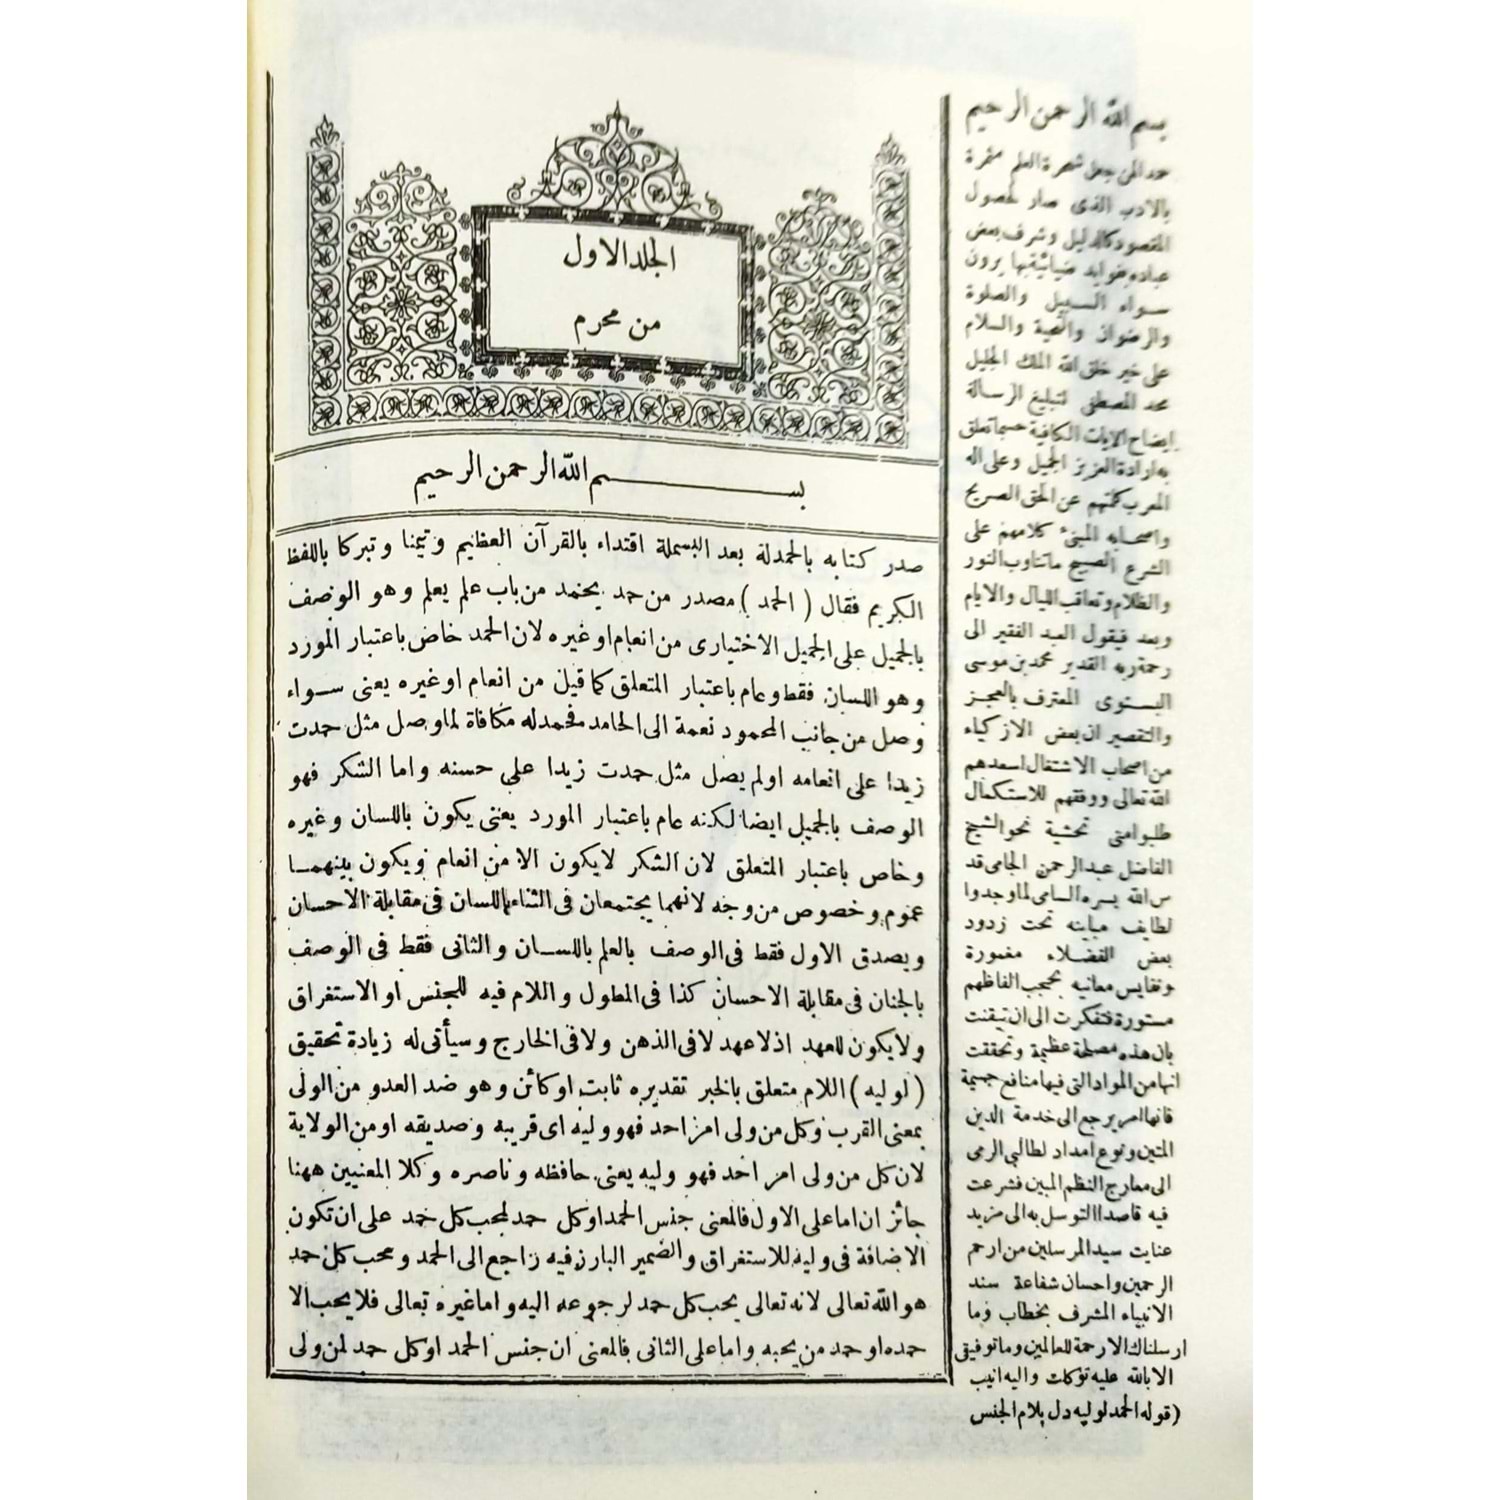 الجلد الاول
من محرم
بسم الله الرحمن الرحيم
صدر كتابه بالحمدلة بعد البسملة اقتداء بالقرآن العظيم وتيمنا وتبركا باللفظ
الكريم فقال (الحمد) مصدر من حمد يحمد من باب علم يعلم وهو الوصف
بالجميل على الجميل الاختيارى من انعام او غيره لان الحمد خاص باعتبار المورد
وهو اللسان فقط وعام باعتبار المتعلق كما قيل من انعام او غيره يعنى سواء
وصل من جانب المحمود نعمة الى الحامد فحمدله مكافاة لما وصل مثل حمدت
زيدا على انعامه اولم يصل مثل حمدت زيدا على حسنه واما الشكر فهو
الوصف بالجميل ايضا لكنه عام باعتبار المورد يعنى يكون باللسان وغيره
وخاص باعتبار المتعلق لان الشكر لايكون الا من انعام ويكون بينهما
عموم وخصوص من وجه لانهما يجتمعان فى الثناء باللسان فى مقابلة الاحسان
ويصدق الاول فقط فى الوصف بالعلم باللسان والثانى فقط فى الوصف
بالجنان فى مقابلة الاحسان كذا فى المطول واللام فيه للجنس او الاستغراق
ولايكون للعهد اذلا عهد لافى الذهن ولافى الخارج وسيأتى له زيادة تحقيق
(لوليه) اللام متعلق بالخبر تقديره ثابت او كائن وهو ضد العدو من الولى
بمعنى القرب وكل من ولى امر احد فهو وليه اى قريبه وصديقه او من الولاية
لان كل من ولى امر احد فهو وليه يعنى حافظه وناصره وكلا المعنيين ههنا
جائز ان اما على الاول فالمعنى جنس الحمد او كل حمد لمحب كل حمد على ان تكون
الاضافة فى وليه للاستغراق والضمير البارز فيه راجع الى الحمد ومحب كل حمد
هو الله تعالى لانه تعالى يحب كل حمد لرجوعه اليه واما غيره تعالى فلا يحب الا
حمده او حمد من يحبه واما على الثانى فالمعنى ان جنس الحمد او كل حمد لمن ولى
بسم الله الرحمن الرحيم
حمدا لمن جعل شجرة العلم مثمرة
بالادب الذى صار لحصول
المقصود كالدليل وشرف بعض
عباده بفوايد ضيائية بها يرون
سواء السبيل والصلوة
والرضوان والتحية والسلام
على خير خلق الله الملك الجليل
محمد المصطفى لتبليغ الرسالة
ايضاح الايات الكافية حسبما تعلق
به ارادة العزيز الجميل وعلى اله
المعرب كلمتهم عن الحق الصريح
واصحابه المبنى كلامهم على
الشرع الصحيح ماتناوب النور
والظلام وتعاقب الليال والايام
وبعد فيقول العبد الفقير الى
رحمة ربه القدير محمد بن موسى
البسنوى المعترف بالعجز
والتقصير ان بعض الازكياء
من اصحاب الاشتغال اسعدهم
الله تعالى ووفقهم للاستكمال
طلبوا منى تحشية نحو الشيخ
الفاضل عبدالرحمن الجامى قد
س الله بسره السامى لما وجدوا
لطايف مبانيه تحت زدود
بعض الفضلاء مغمورة
ونفايس معانيه بحجب الفاظهم
مستورة فتفكرت الى ان تيقنت
بان هذه مصلحة عظيمة وتحققت
انها من المواد التى فيها منافع جسيمة
فانها امر يرجع الى خدمة الدين
المتين ونوع امداد لطالبى الرمى
الى معارج النظم المبين فشرعت
فيه قاصدا التوسل به الى مزيد
عنايت سيد المرسلين من ارحم
الرحمين واحسان شفاعة سند
الانبياء المشرف بخطاب وما
ارسلناك الارحمة للعالمين وماتوفيقى
الا بالله عليه توكلت واليه انيب
(قوله الحمد لوليه دل بلام الجنس